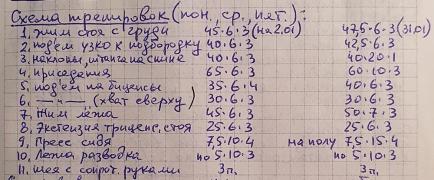 Схема тренировок (пон., ср., пят.):
1, жим стоя с груди 45.6.3 (на 2.01) 47,5.6.3 (31.01)
2, подъем узко к подбородку 40.6.3 42,5.6.3
3, наклоны, штанга на спине 40.6.3 40.20.1
4, приседания 65.6.3 60.10.3
5, под'ем на бицепсы 35.6.4 40.6.3
6, —"— (хват сверху) 30.6.3 30.6.3
7, Жим лёжа 45.6.3 50.7.3
8, Экстензия трицепс, стоя 25.6.3 25.6.3
9, Пресс сидя 7,5.10.4 на полу 7,5.15.4
10, Лежа разводка по 5.10.3 по 5.10.3
11, шея с сопрот. руками 3п. 3п.